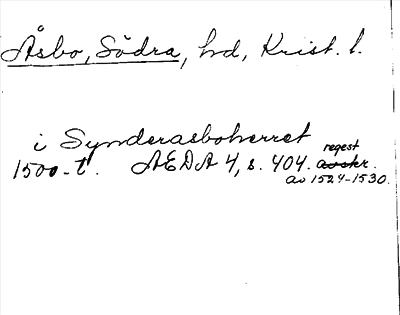 Åsbo, Södra, hd, Krist. l.
i Synderasboherret
regest
1500-t. AEDA 4, s. 404. avskr.
av 1524-1530.